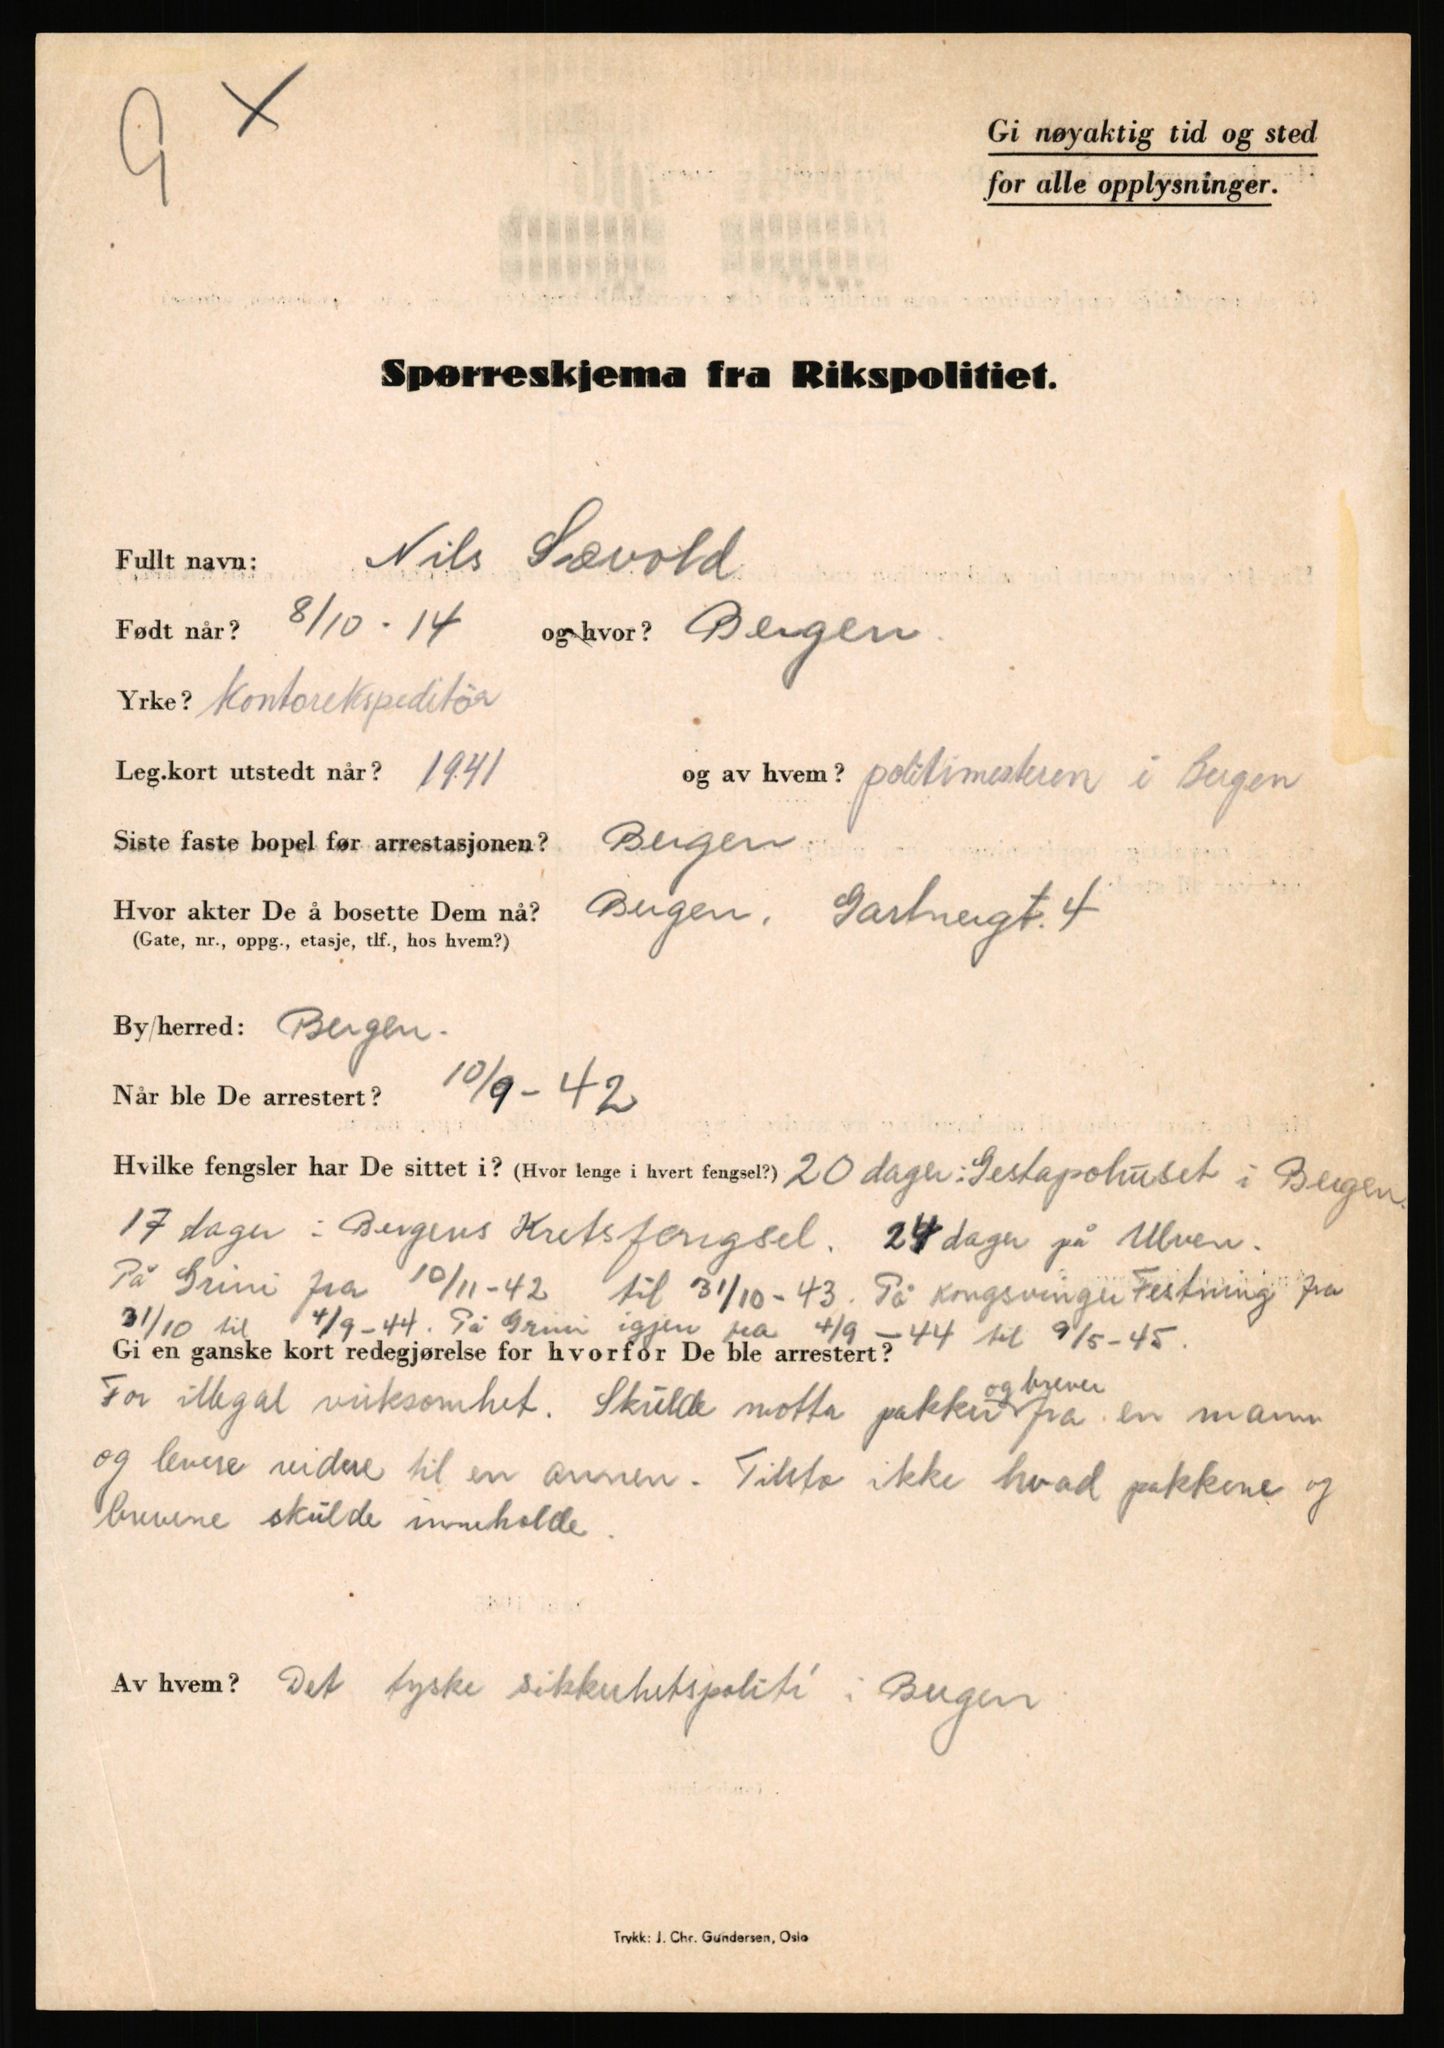 G X
Gi nøyaktig tid og sted
for alle opplysninger.
Spørreskjema fra Rikspolitiet.
Fullt navn: Nils Sævold
Født når? 8/10 - 14 og hvor? Bergen.
Yrke? Kontorekspeditør
Leg.kort utstedt når? 1941 og av hvem? politimesteren i Bergen
Siste faste bopel før arrestasjonen? Bergen.
Hvor akter De å bosette Dem nå? Bergen. Gartnergt. 4
(Gate, nr., oppg., etasje, tlf., hos hvem?)
By/herred: Bergen.
Når ble De arrestert? 10/9 - 42
Hvilke fengsler har De sittet i? (Hvor lenge i hvert fengsel?) 20 dager i Gestapohuset i Bergen.
17 dager i Bergens Kretsfengsel. 24 dager på Ulven.
På Grini fra 10/11 - 42 til 31/10 - 43. På Kongsvinger Festning fra
31/10 til 4/9 - 44. På Grini igjen fra 4/9 - 44 til 9/5 - 45.
Gi en ganske kort redegjørelse for hvorfor De ble arrestert?
For illegal virksomhet. Skulde motta pakker og brever fra en mann
og levere videre til en annen. Tilsto ikke hvad pakkene og
brevene skulde inneholde.
Av hvem? Det tyske sikkerhetspoliti i Bergen
Trykk: J. Chr. Gundersen, Oslo